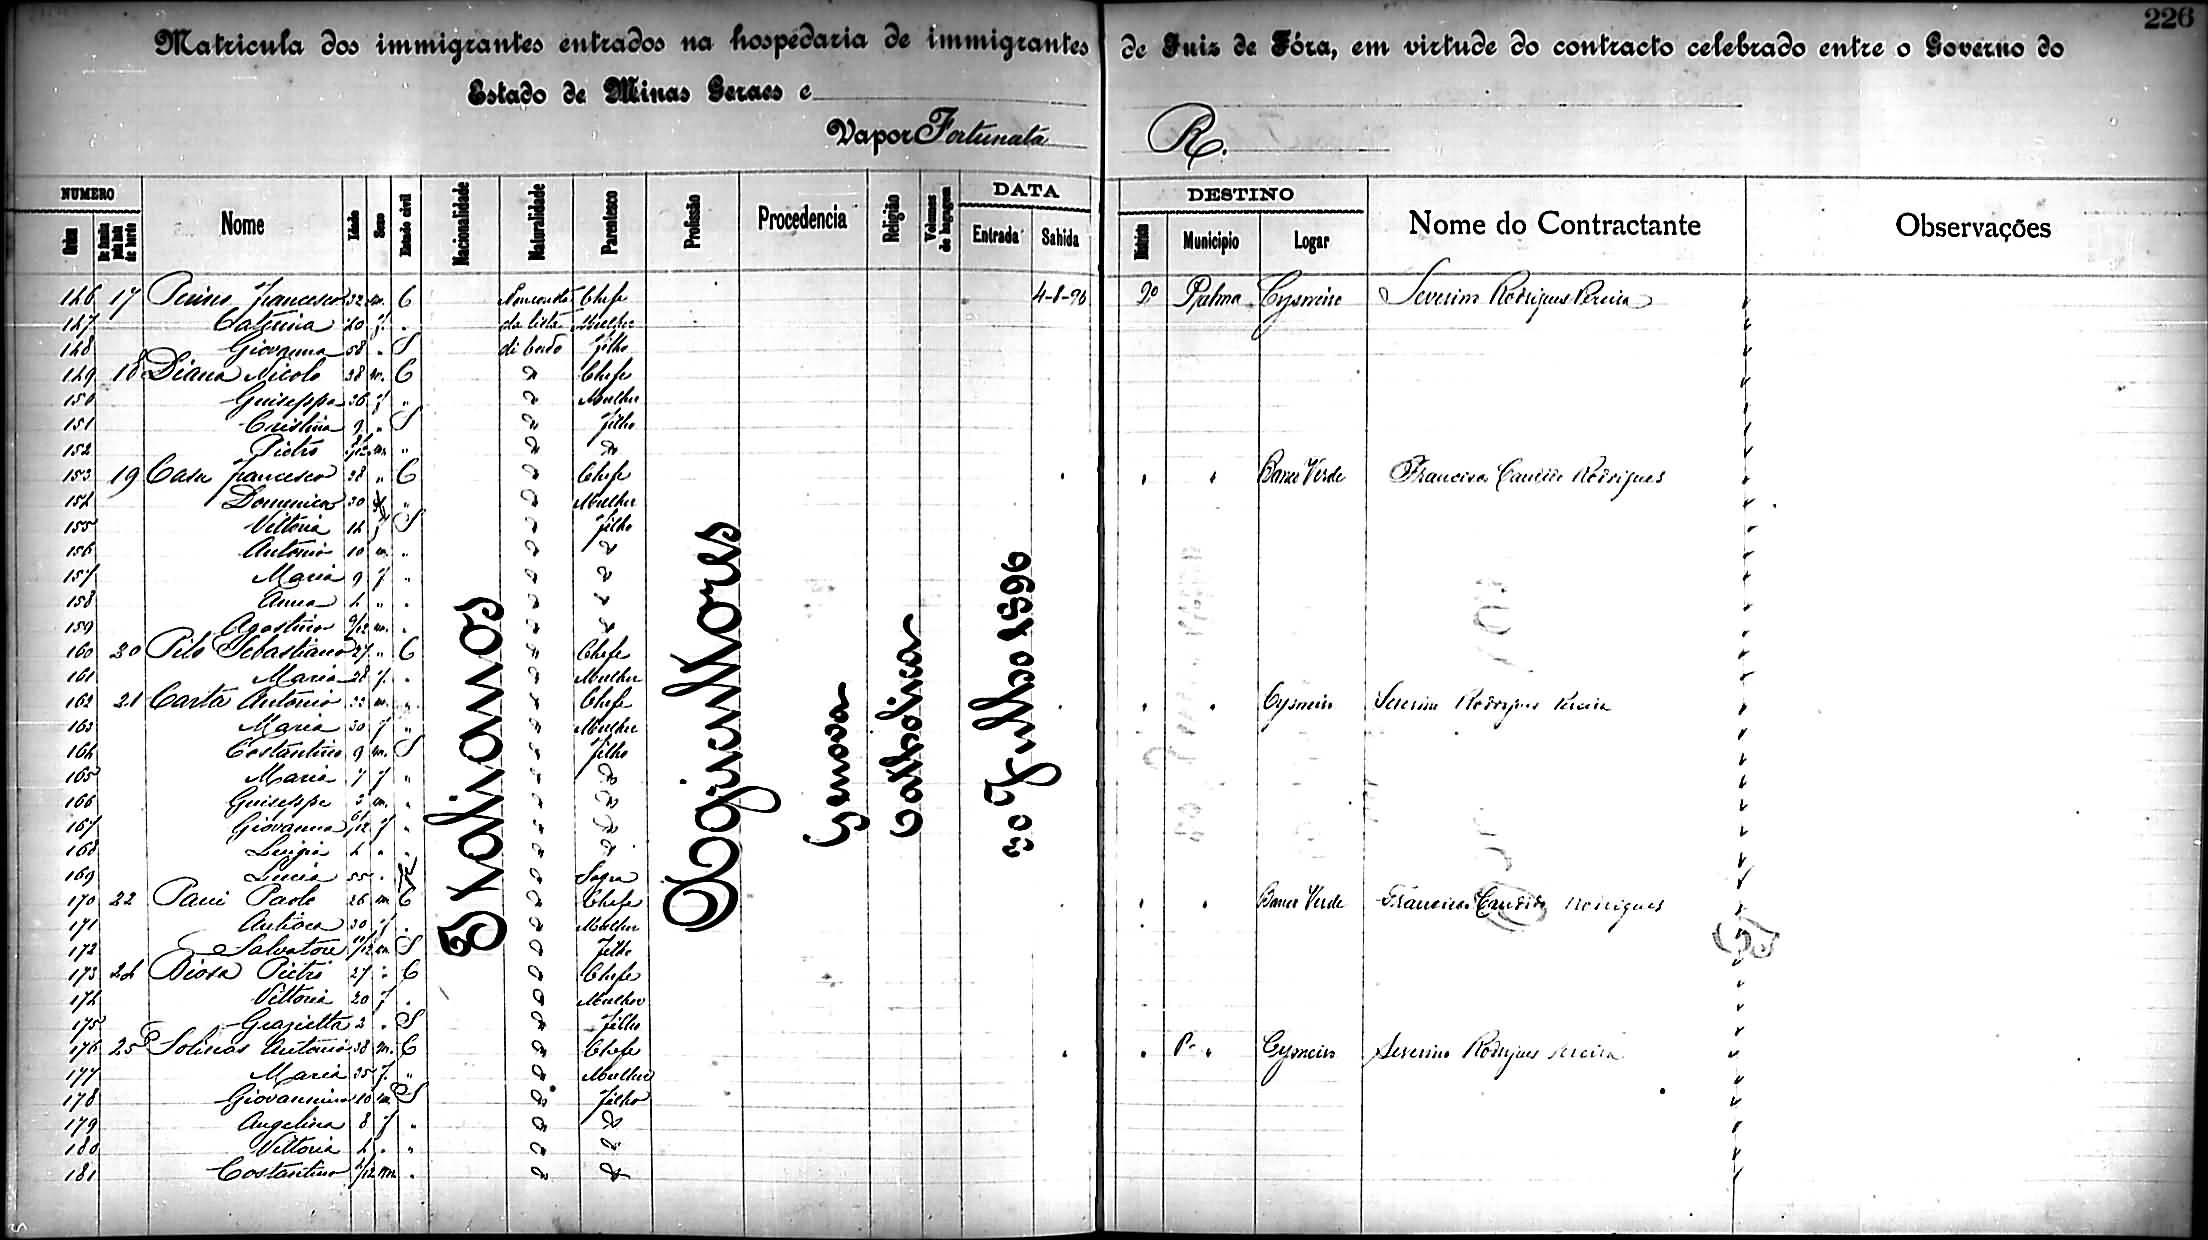 226
Matricula dos immigrantes entrados na hospedaria de immigrantes de Juiz de Fóra, em virtude do contracto celebrado entre o Governo do
Estado de Minas Geraes e
Vapor Fortunata R.
NUMERO Nome Idade Sexo Estado civil Nacionalidade Naturalidade Parentesco Profissão Procedencia Religião Volumes de bagagem DATA DESTINO Nome do Contractante Observações
Ordem De familia pela lista de bordo Entrada Sahida Districto Municipio Logar
146 17 Francesco 32 m. C Non consta Chefe 4-8-96 2º Palma Cysneiro Severino Rodrigues Pereira
147 Caterina 20 f. " da lista Mulher
148 Giovanna 58 " S di bordo filho
149 18 Diana Nicolo 38 m. C " Chefe
150 Guiseppa 36 f " " Mulher
151 Cristina 9 " S " filho
152 Pietro m. " " "
153 19 Casu Francesco 38 " C " Chefe " " Barro Verde Francisco Candido Rodrigues
154 Domenica 30 f " " Mulher
155 Vittoria 14 f S " filho
156 Antonio 10 m. " " "
157 Maria 9 f " " "
158 Anna 4 " " " "
159 Agostino 9/12 m. " " "
160 20 Pilo Sebastiano 27 " C " Chefe
161 Maria 28 f. " " Mulher
162 21 Carta Antonio 33 m. " " Chefe " " Cysneiro Severino Rodrigues Pereira
163 Maria 30 f " " Mulher
164 Costantino 9 m. S " filho
165 Maria 7 f " " "
166 Guiseppe 3 m. " " "
167 Giovanna 6/12 f " " "
168 Luigia 4 " " " "
169 Lucia 55 " " Sogra
170 22 Paui Paolo 26 m C " Chefe " " Barro Verde Francisco Candido Rodrigues
171 Antioca 30 f. " " Mulher
172 Salvatore m S " filho
173 24 Biosa Pietro 27 " C " Chefe
174 Vittoria 20 f " " Mulher
175 Grazietta 2 " S " filho
176 25 Solinas Antonio 38 m. C " Chefe " " Cysneiro Severino Rodrigues Pereira
177 Maria 35 f. " " Mulher
178 Giovannino 10 m S " filho
179 Angelina 8 f " " "
180 Vittoria 4 " " " "
181 Costantino m. " " "
Italianos
Agricultores
Genova
Catholica
30 Julho 1896